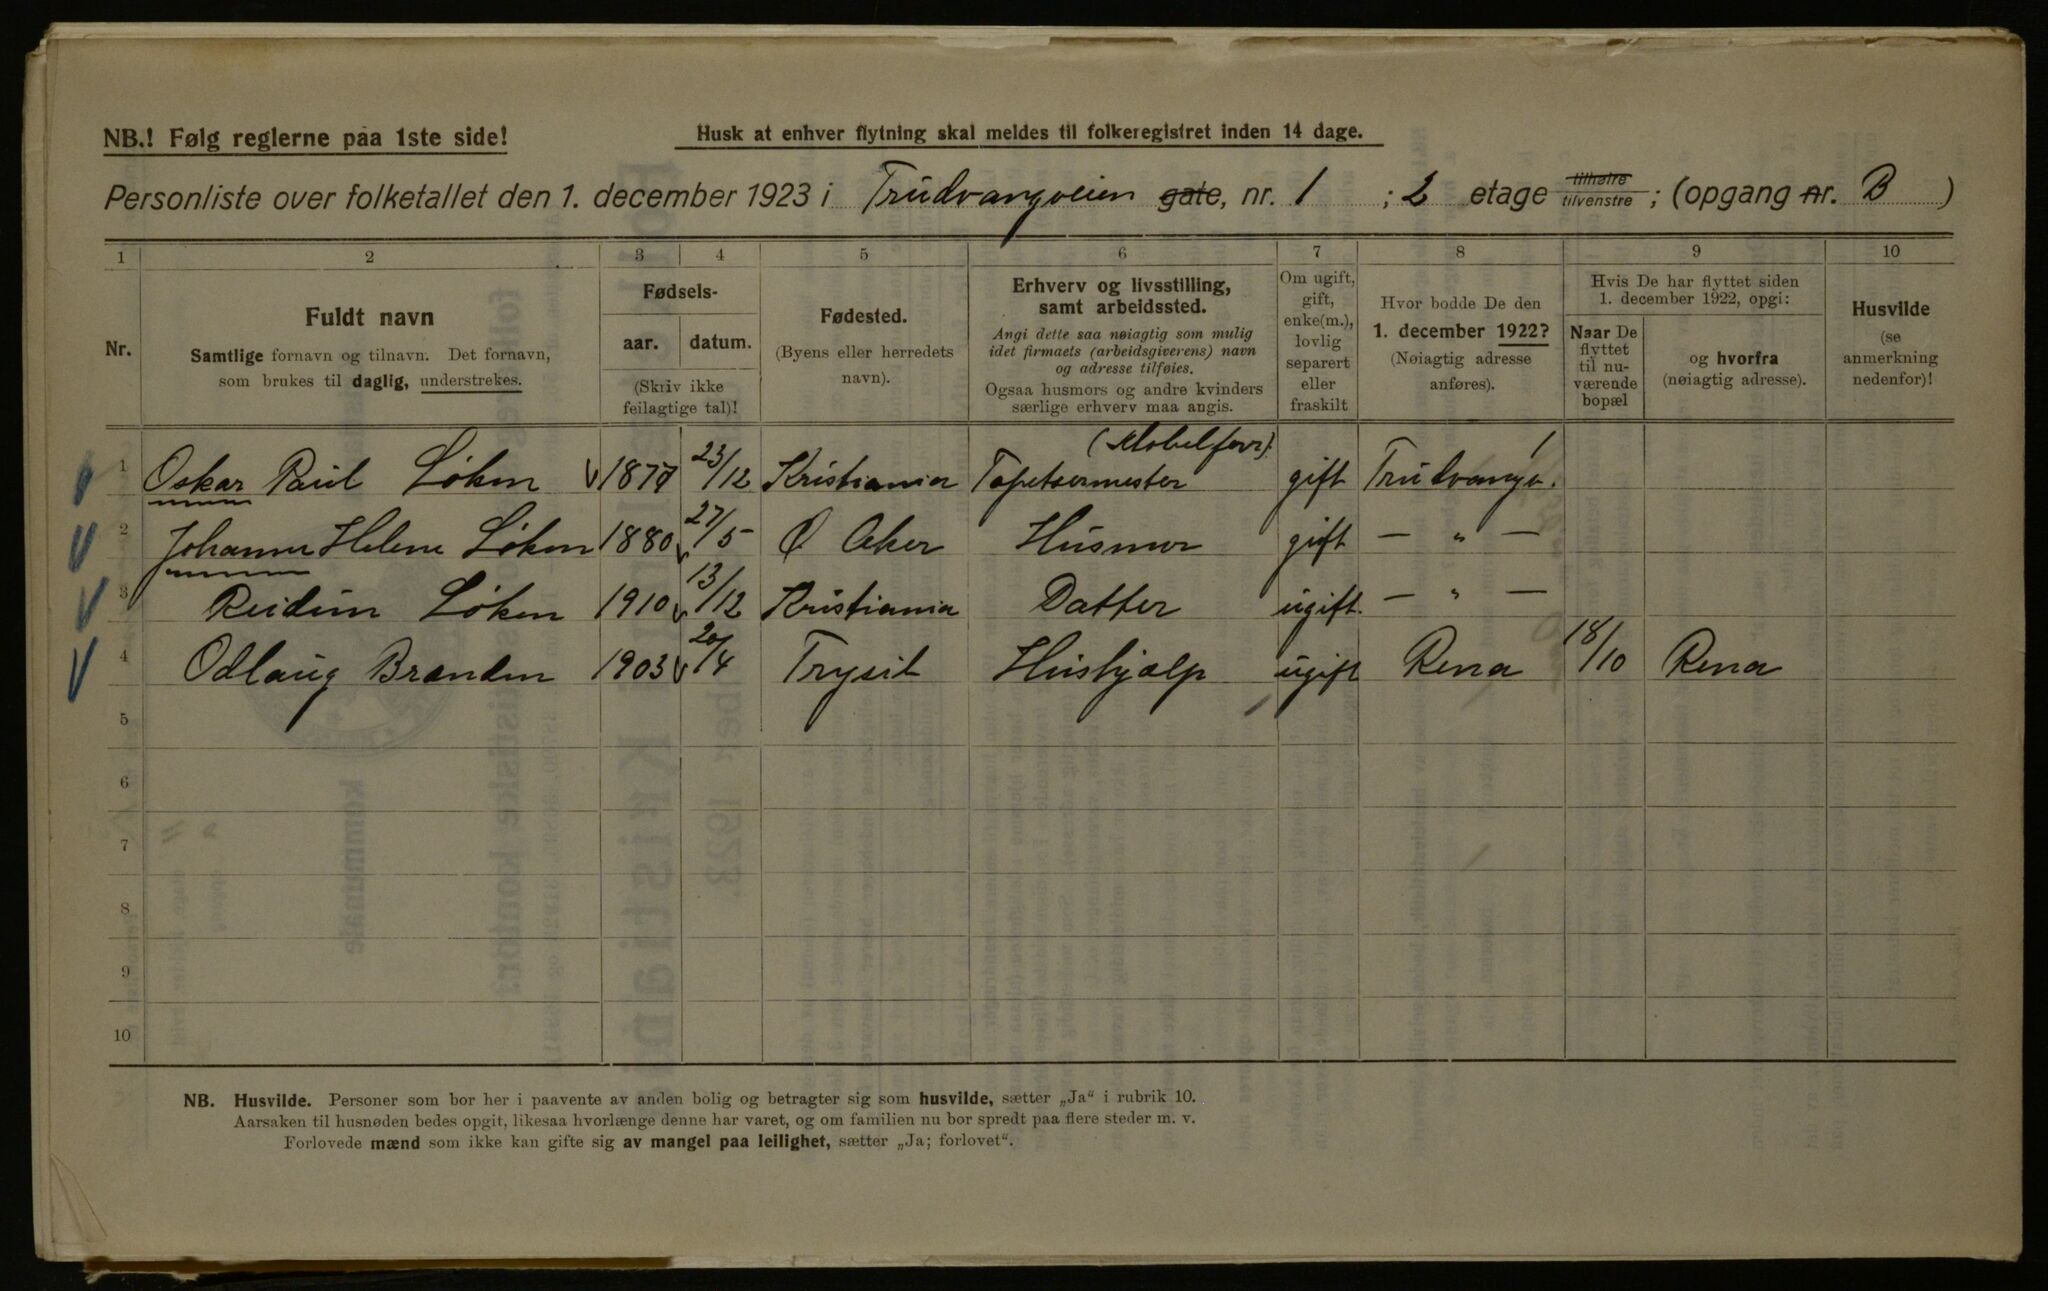 NB.! Følg reglerne paa 1ste side!
Husk at enhver flytning skal meldes til folkeregistret inden 14 dage.
Personliste over folketallet den 1. december 1923 i Trudvangveien gate, nr. 1 ; 2 etage tilhøire tilvenstre ; (opgang nr. B )
1 2 3 4 5 6 7 8 9 10
Nr.
Fuldt navn
Samtlige fornavn og tilnavn. Det fornavn,
som brukes til daglig, understrekes.
Fødsels-
aar. datum.
(Skriv ikke
feilagtige tal)!
Fødested.
(Byens eller herredets
navn).
Erhverv og livsstilling,
samt arbeidssted.
Angi dette saa nøiagtig som mulig
idet firmaets (arbeidsgiverens) navn
og adresse tilføies.
Ogsaa husmors og andre kvinders
særlige erhverv maa angis.
Om ugift,
gift,
enke(m.),
lovlig
separert
eller
fraskilt
Hvor bodde De den
1. december 1922?
(Nøiagtig adresse
anføres).
Hvis De har flyttet siden
1. december 1922, opgi:
Naar De
flyttet
til nu-
værende
bopæl
og hvorfra
(nøiagtig adresse).
Husvilde
(se
anmerkning
nedenfor)!
1 Oskar Paul Løken 1877 23/12 Kristiania Tapetsermester gift Trudvangv. 1
2 Johanne Helene Løken 1880 27/5 Ø Aker Husmor gift — " —
3 Reidun Løken 1910 13/12 Kristiania Datter ugift. — " —
4 Odlaug Brænden 1903 20/4 Trysil Hushjælp ugift Rena 18/10 Rena
5
6
7
8
9
10
NB. Husvilde. Personer som bor her i paavente av anden bolig og betragter sig som husvilde, sætter „Ja“ i rubrik 10.
Aarsaken til husnøden bedes opgit, likesaa hvorlænge denne har varet, og om familien nu bor spredt paa flere steder m. v.
Forlovede mænd som ikke kan gifte sig av mangel paa leilighet, sætter „Ja; forlovet“.